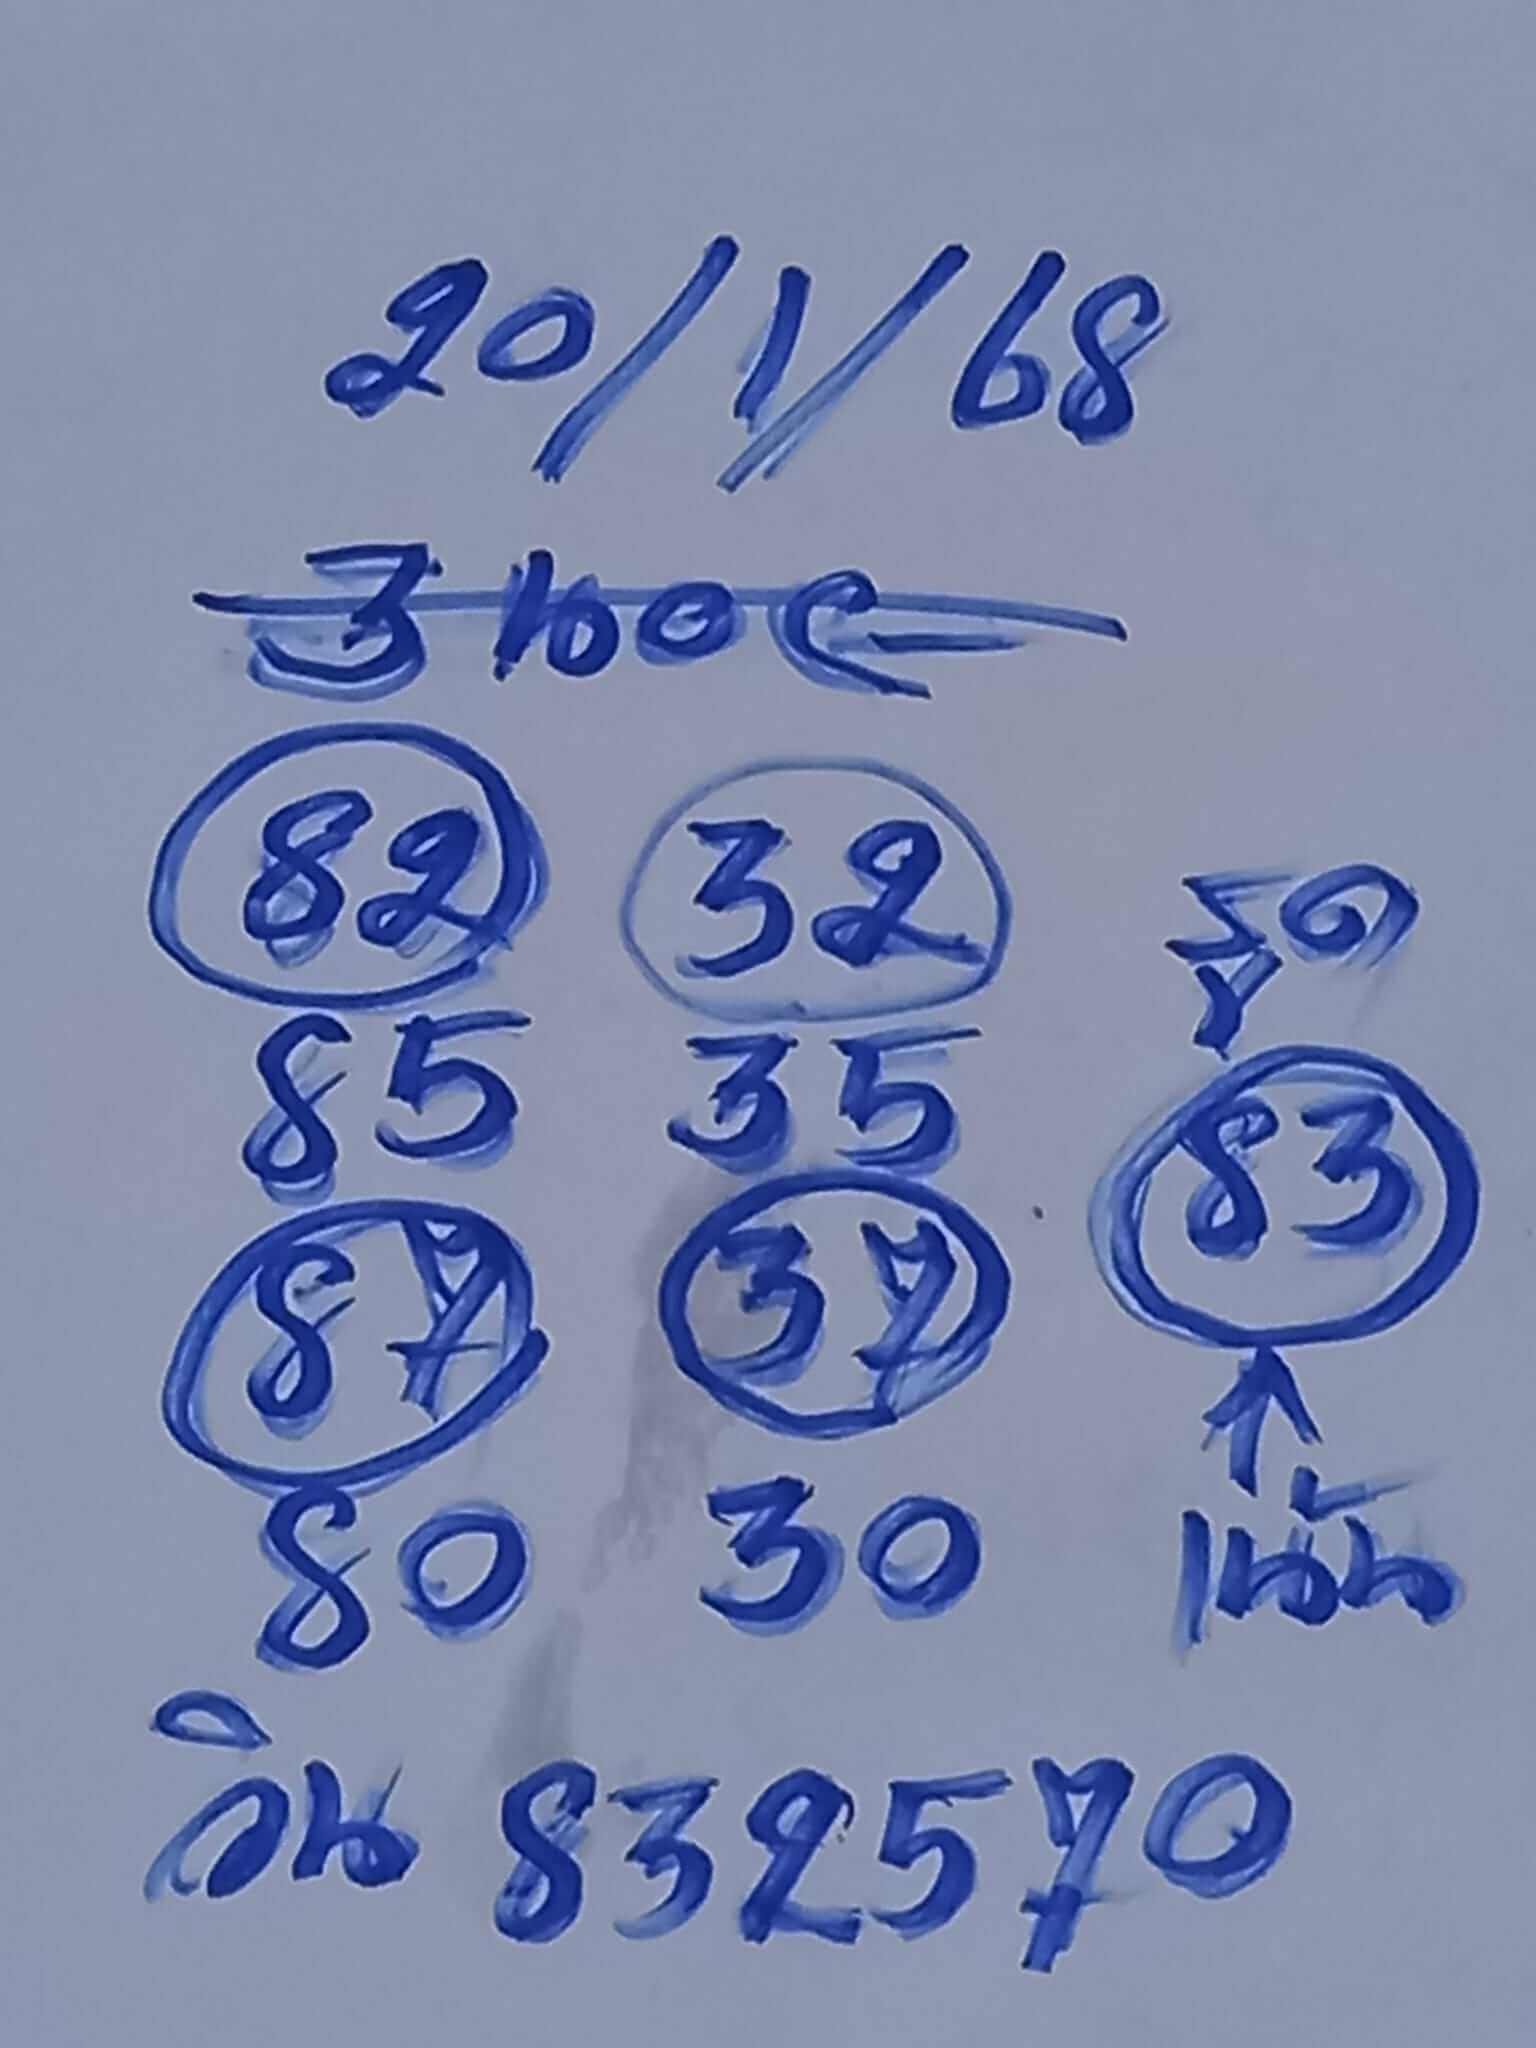 20/1/68
3 นอย
82 32
85 35
รูด
87 37
83
80 30
เน้น
วิน 832570